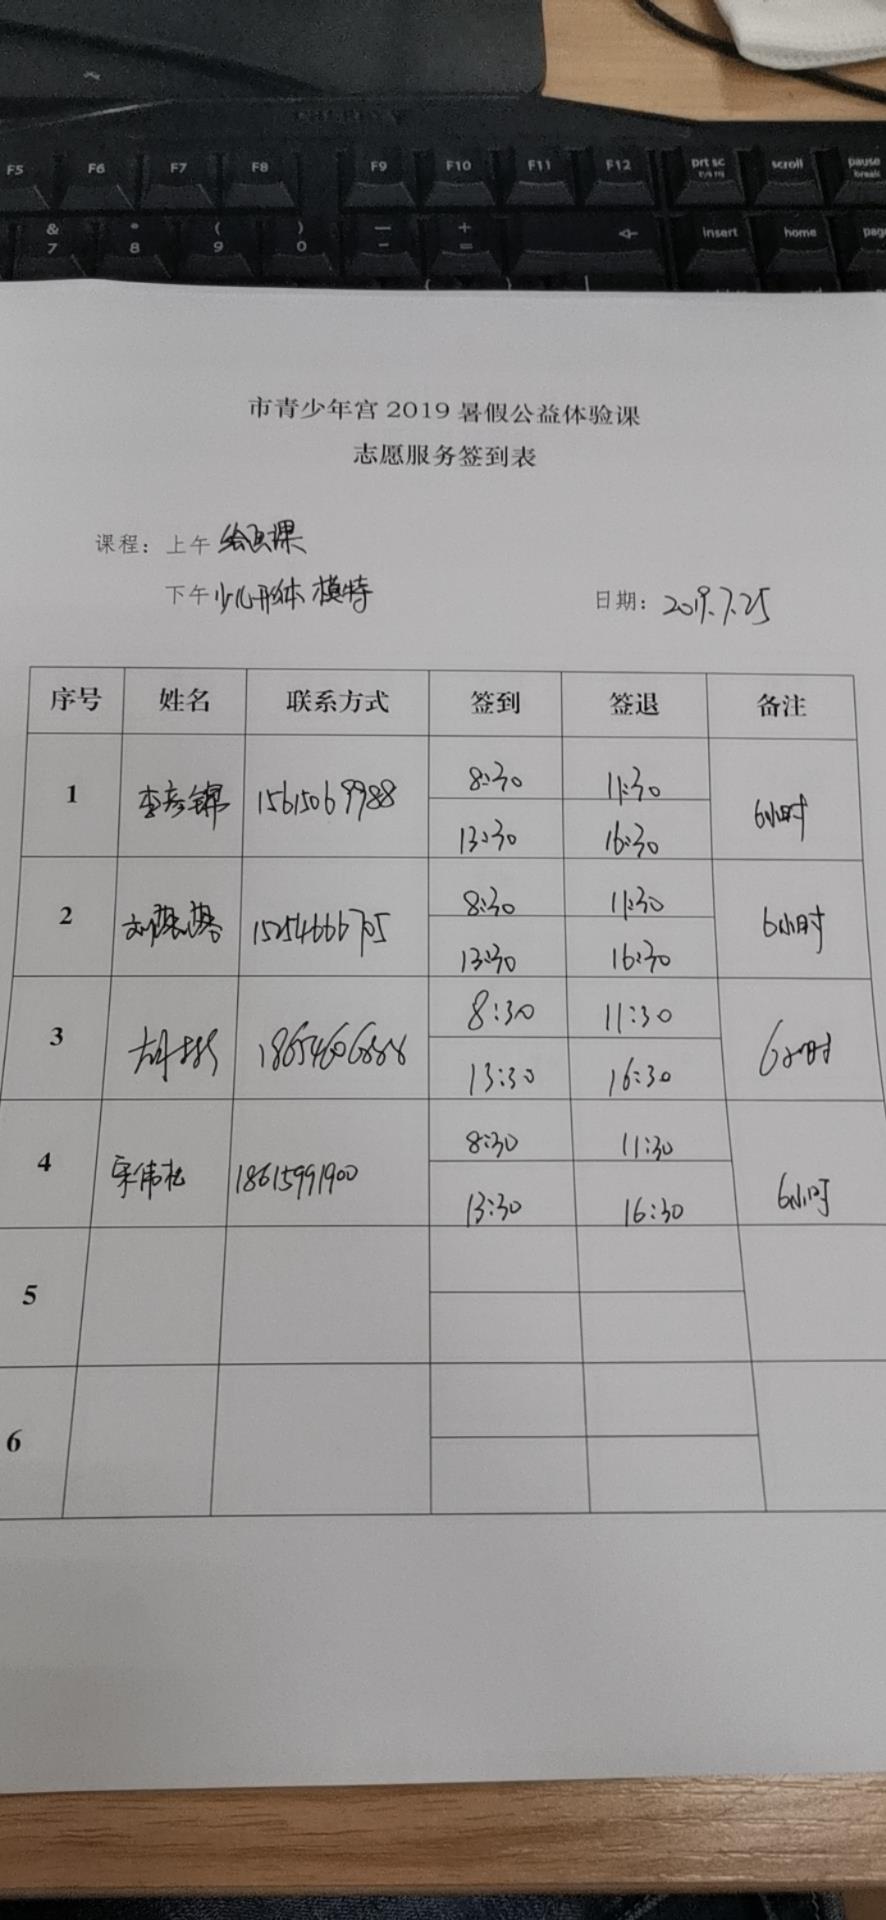 F5 F6 F7 F8 F9 F10 F11 F12 prt sc scroll pause
sys rq break
& * ( ) — +
7 8 9 0 - = insert home
市青少年宫 2019 暑假公益体验课
志愿服务签到表
课程：上午 绘画课
下午 少儿形体 模特 日期：2019.7.25
序号 姓名 联系方式 签到 签退 备注
1 李彦锦 15615069988 8:30 11:30 6小时
13:30 16:30
2 15254666705 8:30 11:30 6小时
13:30 16:30
3 8:30 11:30 6小时
13:30 16:30
4 宋伟松 18615991900 8:30 11:30 6小时
13:30 16:30
5
6